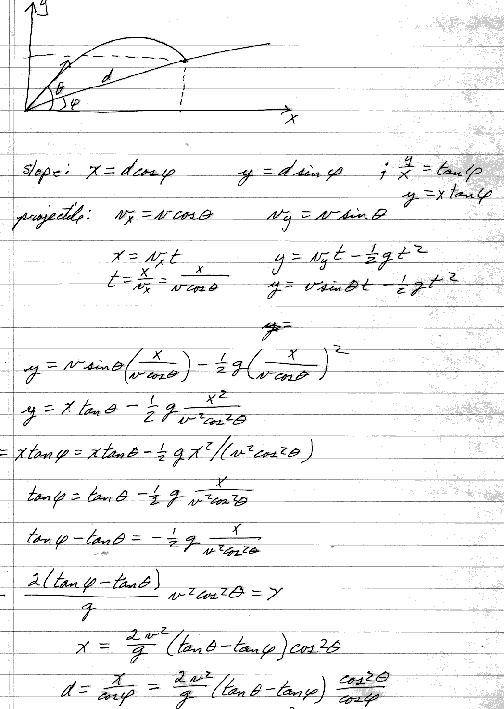 y
θ
d
φ
x
slope: x = d cos φ y = d sin φ ; y/x = tan φ
y = x tan φ
projectile: v_x = v cos θ v_y = v sin θ
x = v_x t y = v_y t - 1/2 g t^2
t = x/v_x = x/(v cos θ) y = v sin θ t - 1/2 g t^2
y =
y = v sin θ (x/(v cos θ)) - 1/2 g (x/(v cos θ))^2
y = x tan θ - 1/2 g x^2/(v^2 cos^2 θ)
= x tan φ = x tan θ - 1/2 g x^2/(v^2 cos^2 θ)
tan φ = tan θ - 1/2 g x/(v^2 cos^2 θ)
tan φ - tan θ = - 1/2 g x/(v^2 cos^2 θ)
- 2(tan φ - tan θ)/g v^2 cos^2 θ = x
x = 2v^2/g (tan θ - tan φ) cos^2 θ
d = x/cos φ = 2v^2/g (tan θ - tan φ) cos^2 θ/cos φ